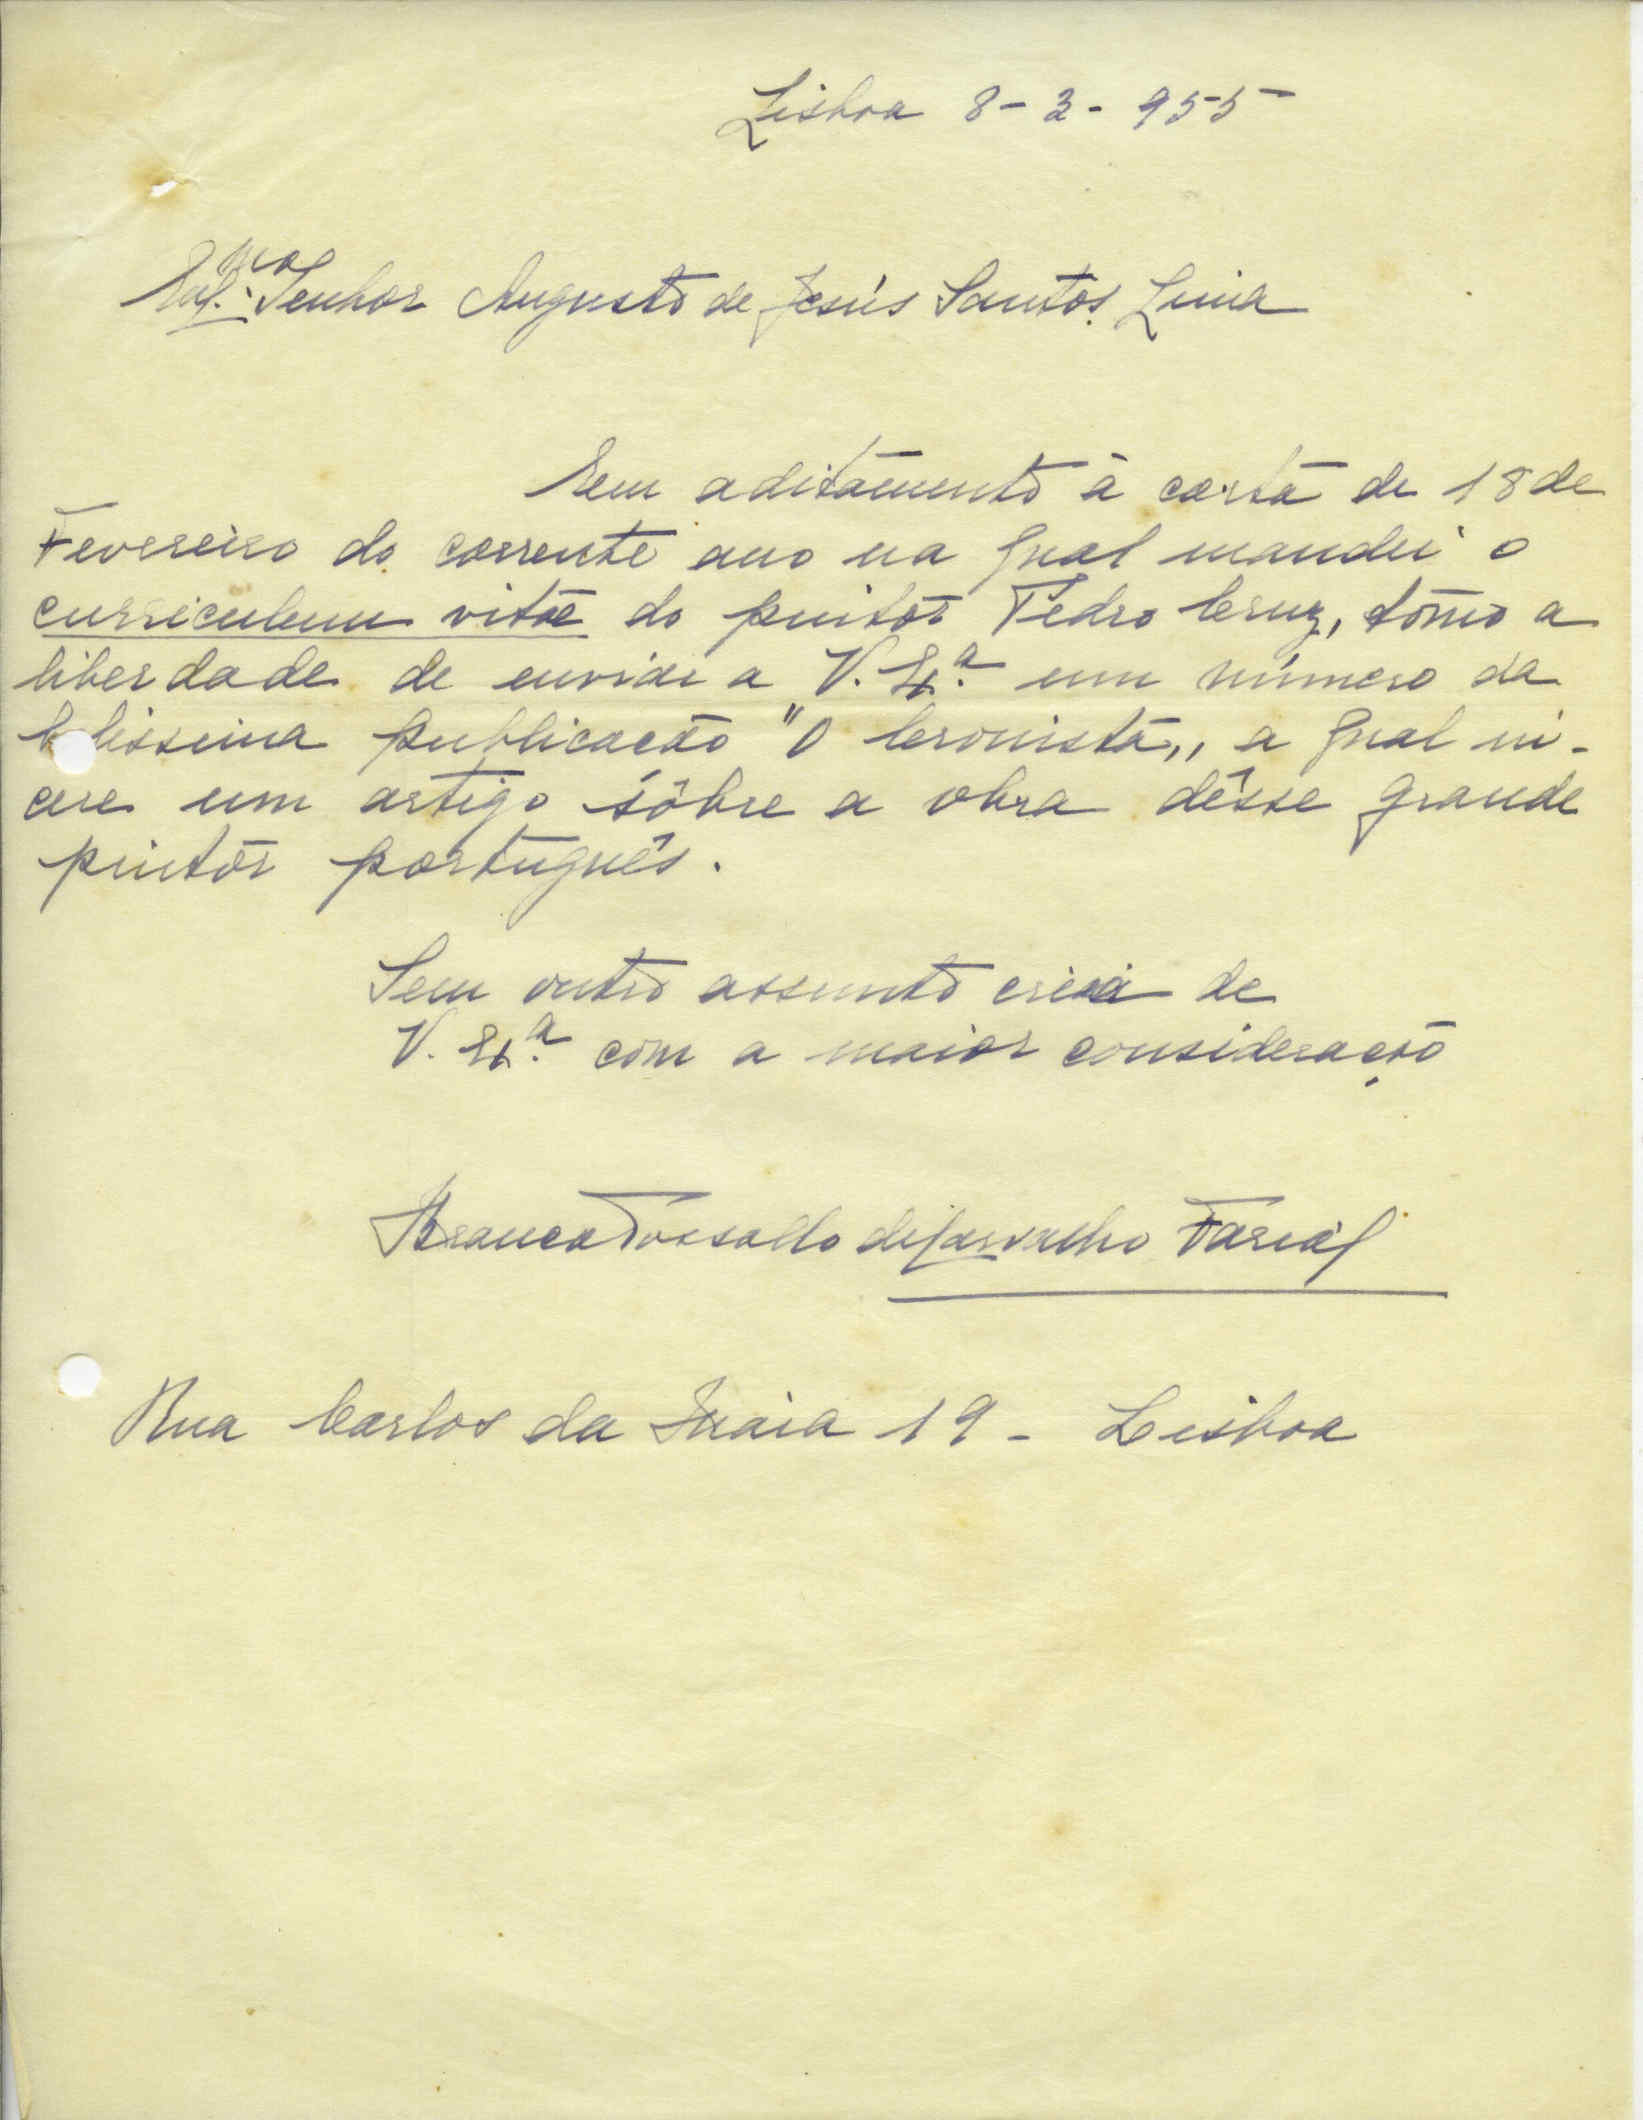 Lisboa 8-3-955
Exmo. Senhor Augusto de Jesús Santos Lima
Em aditamento à carta de 18 de
Fevereiro do corrente ano na qual mandei o
curriculum vitae do pintôr Pedro Cruz, tômo a
liberdade de enviar a V. Ex.ª um número da
belissima publicação "O Cronista,, a qual in-
cere um artigo sôbre a obra dêsse grande
pintôr português.
Sem outro assunto de
V. Ex.ª com a maior consideração
Branca de Carvalho
Rua Carlos da Maia 19 - Lisboa